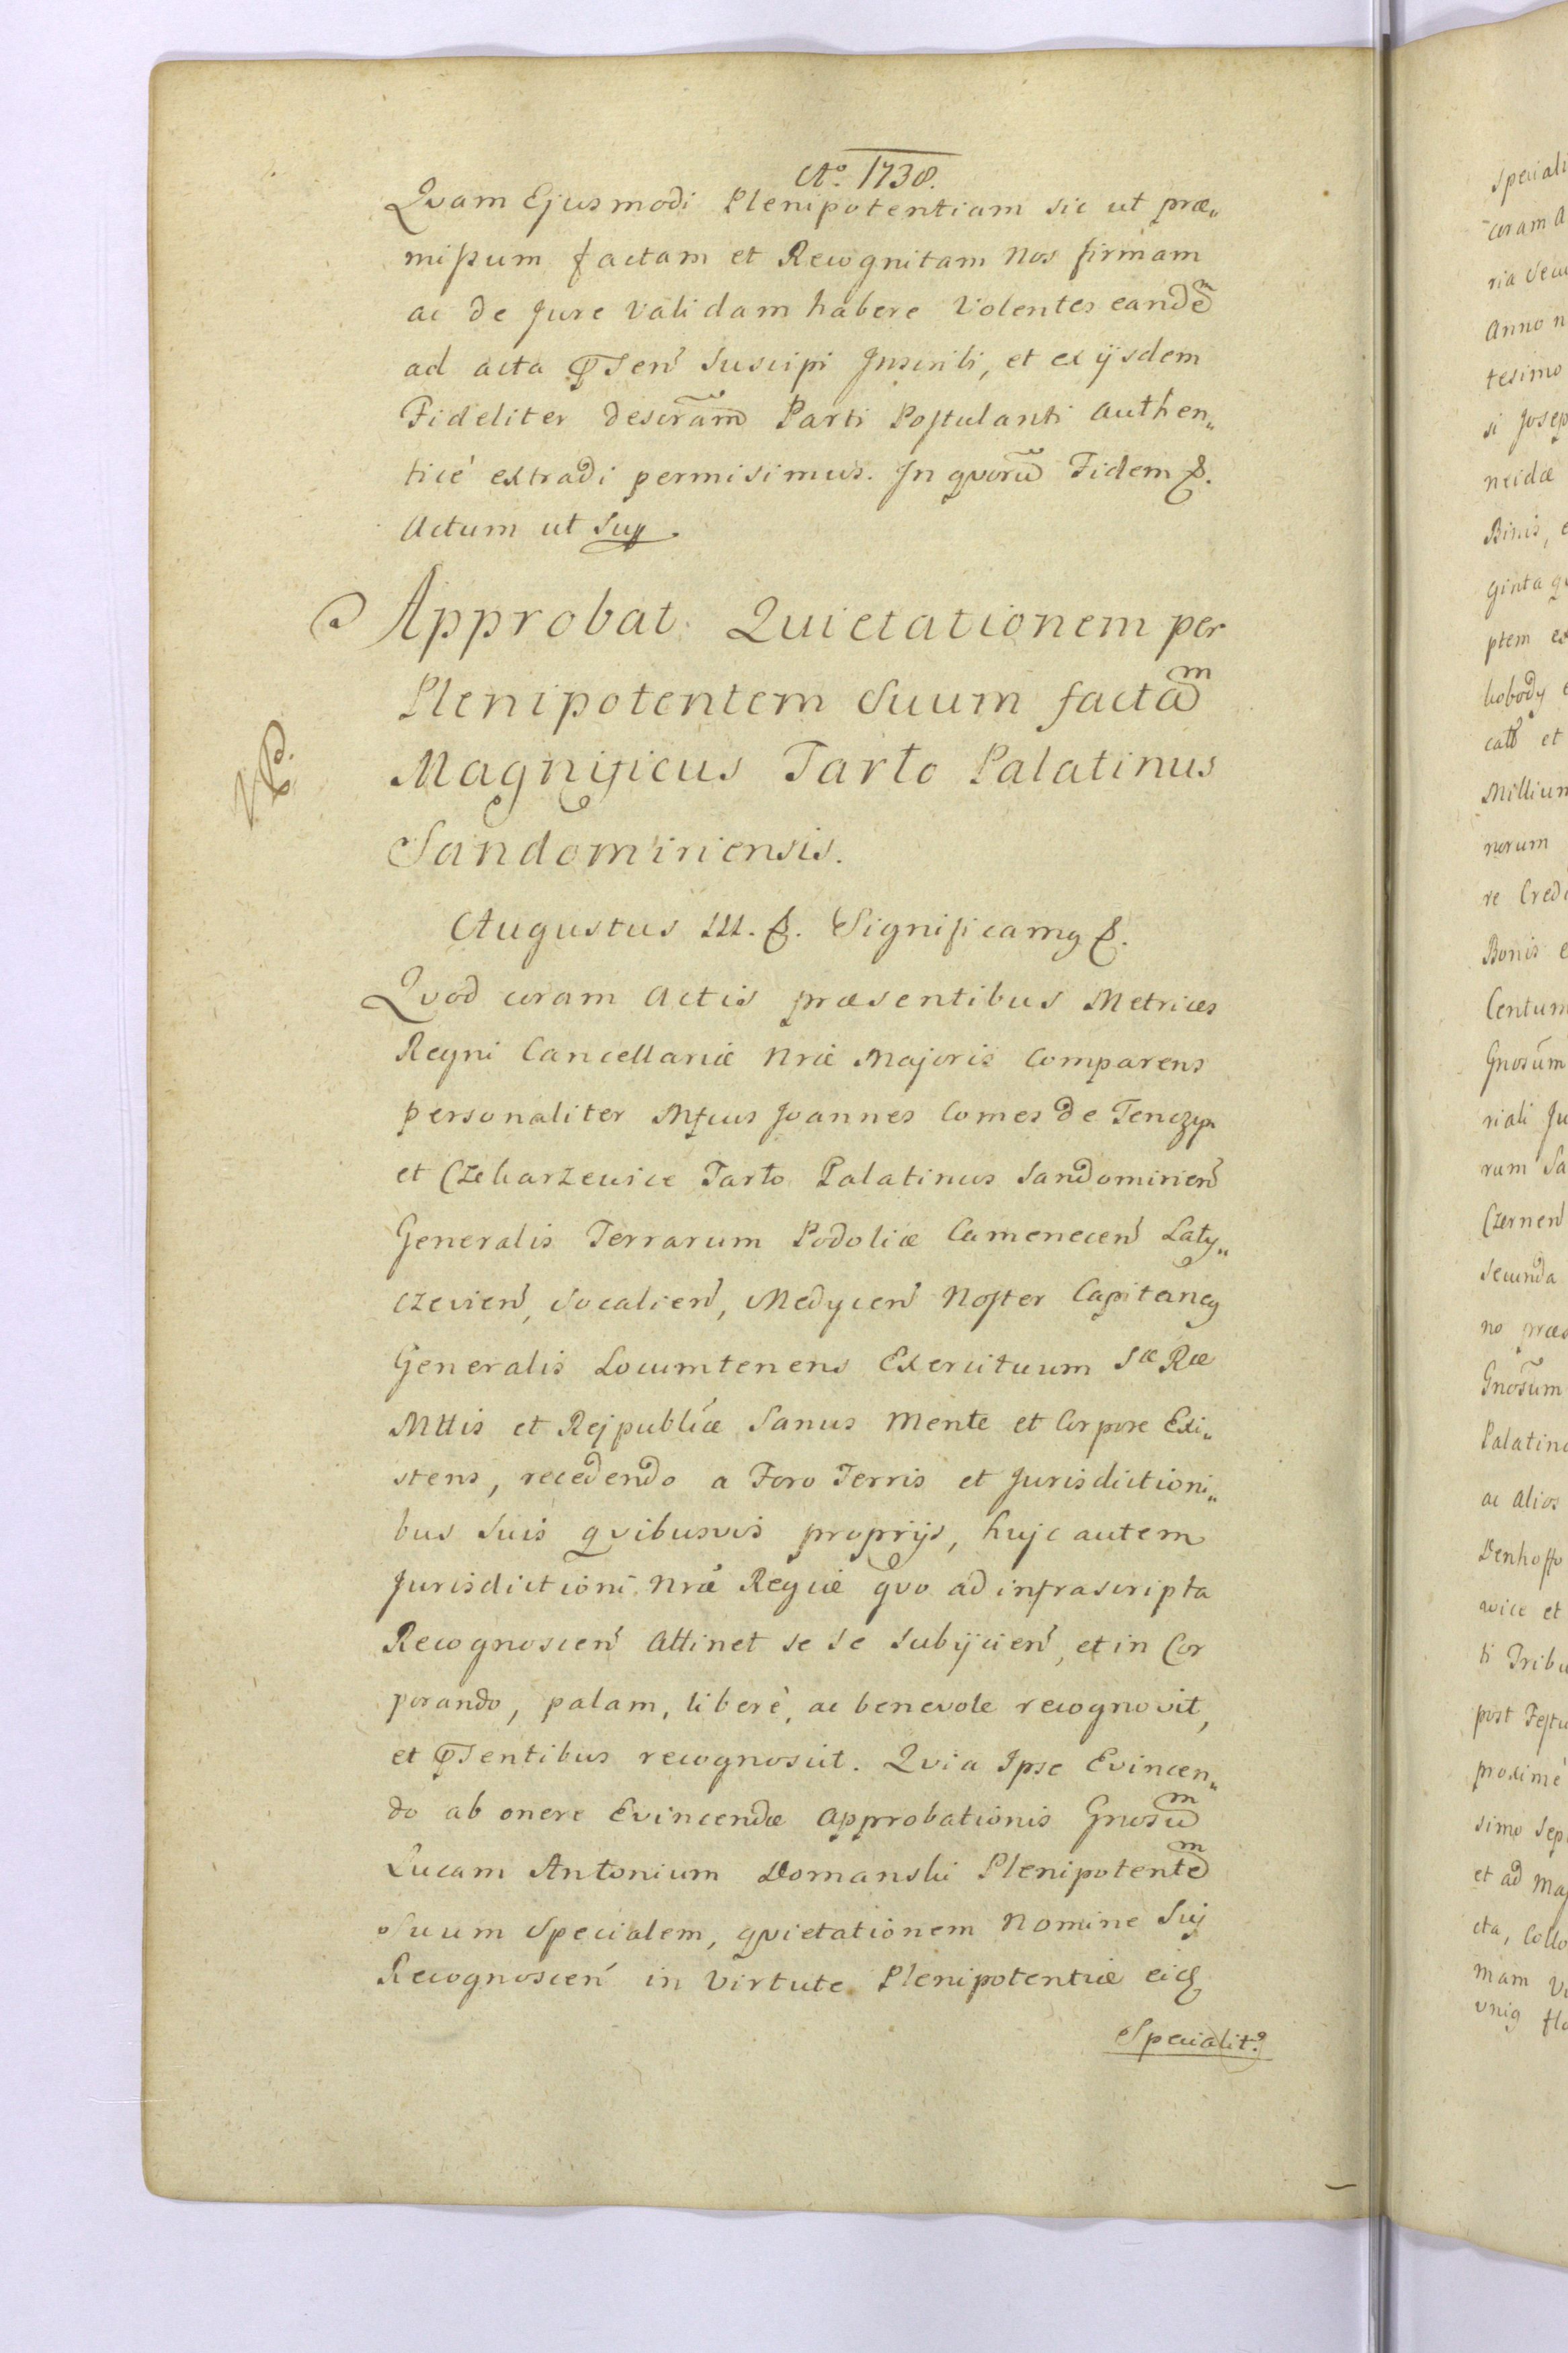 Ao. 1738.
Qvam Ejusmodi Plenipotentiam sic ut præ„
mißum factam et Recognitam Nos firmam
ac de Jure validam habere Volentes eandẽ
ad acta pñsen̄ Suscipi Inscribi, et ex ijsdem
Fideliter descrãm Parti Postulanti Authen„
ticè extradi permisimus. In qvorũ Fidem &.
Actum ut Sup.
Approbat Quietationem per
Plenipotentem Suum factam
Magnificus Tarło Palatinus
Sandomiriensis.
Augustus III. &. Significamq &.
Qvod coram Actis præsentibus Metrices
Regni Cancellariæ Nræ Majoris Comparens
personaliter Mfcus Joannes Comes de Tenczyn
et Czekarzewice Tarło Palatinus Sandomirien̄
Generalis Terrarum Podoliæ Camenecen̄ Laty„
czevien̄, Socalien̄, Medycen̄ Noster Capitaneq
Generalis Locumtenens Exercituum Sæ Ræ
Mttis et Rejpublicæ Sanus Mente et Corpore Exi„
stens, recedendo a Foro Terris et Jurisdictioni„
bus Suis qvibusvis proprijs, hujc autem
Jurisdictioni Nræ Regiæ qvo ad infrascripta
Recognoscen̄ Attinet se se Subijcien̄, et in Cor
porando, palam, liberè, ac benevole recognovit,
et pñsentibus recognoscit. Qvia Ipse Evincen„
do ab onere Evincendæ Approbationis Gnosum
Lucam Antonium Domanski Plenipotentem
Suum Specialem, qvietationem Nomine Sui
Recognoscen̄ in Virtute Plenipotentiæ eidem
Specialitꝰ

speciali
coram A
ria
Anno n
tesimo
si Josep
neidæ
Binis, e
ginta qv
ptem ex
cati et
Millium
norum
re Credi
Bonis e
Centum
Gnosum
riali Ju
rum Sa
Czernen̄
Secunda
no præs
Gnosum
Palatino
ac alios
Denhoffo
wice et
ti Tribu
post Festu
proximè
simo Sep
et ad Maj
cta, Collo
mam